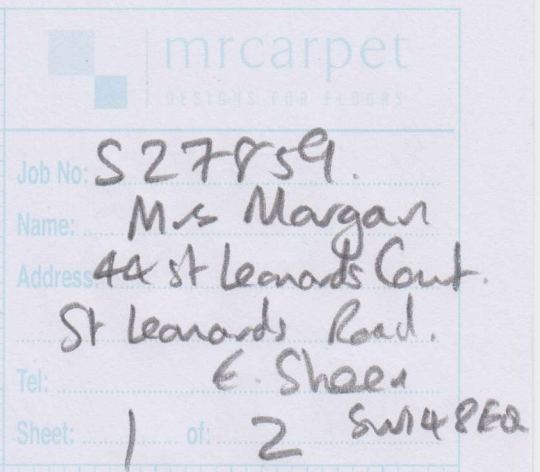 mrcarpet
DESIGNS FOR FLOORS
Job No: S27859.
Name: Mrs Morgan
Address: 44 St Leonards Court.
St Leonards Road.
Tel: E. Sheen
Sheet: 1 of: 2 SW14 8EQ